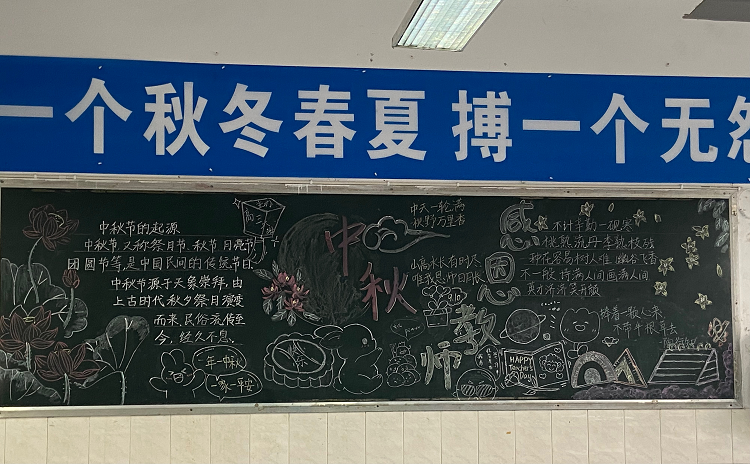 一个秋冬春夏 搏一个无怨
中秋节的起源
中秋节又称祭月节、秋节、月亮节
团圆节等,是中国民间的传统节日
中秋节源于天象崇拜,由
上古时代秋夕祭月演变
而来,民俗流传至
今,经久不息。
年一中秋
家一平安
中秋
中天一轮满
秋野万里香
山高水长有时尽
唯我恩师日月长
感恩教师
不计辛勤一砚寒
桃熟流丹 李艳枝残
种花容易树人难 幽谷飞香
不一般 诗满人间 画满人间
捧着一颗心来
不带半根草去
HAPPY
Teacher's
Day